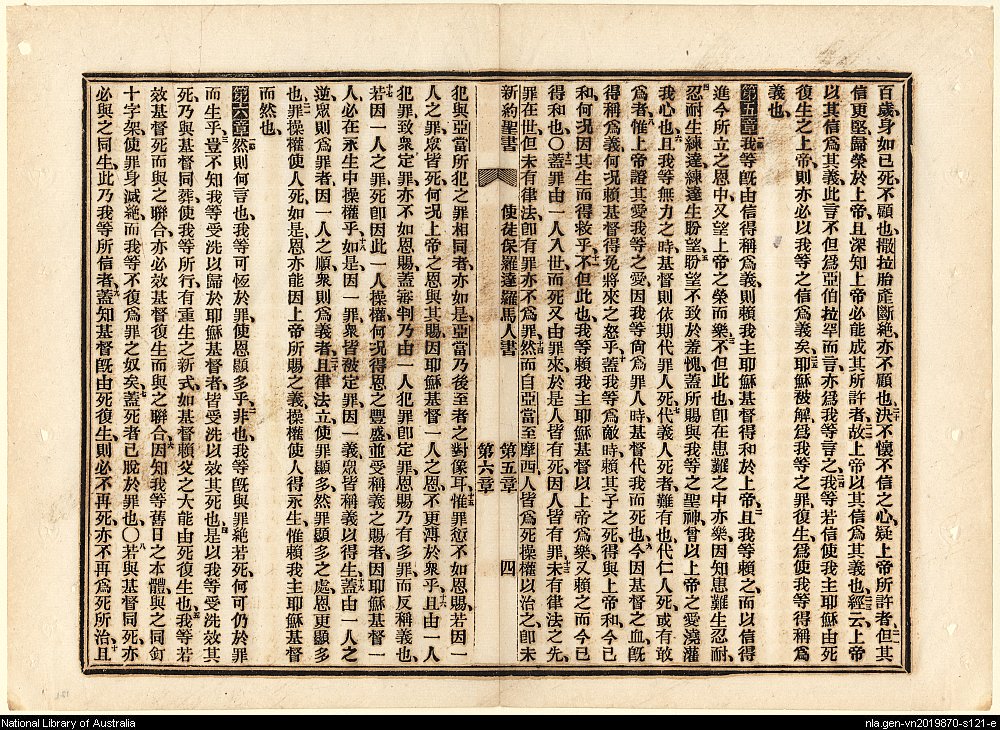 百歲、身如已死不顧也、撒拉胎產斷絕亦不顧也、決不懷不信之心、疑上帝所許者、但其
信更堅、歸榮於上帝、且深知上帝必能成其所許者、故上帝以其信爲其義也、經云、上帝
以其信爲其義、此言不但爲亞伯拉罕而言、亦爲我等言之、我等若信使我主耶穌由死
復生之上帝、則亦必以我等之信爲義矣、耶穌被解、爲我等之罪、復生、爲使我等得稱爲
義也、
第五章 我等旣由信得稱爲義、則賴我主耶穌基督、得和於上帝、且我等賴之、而以信得
進今所立之恩中、又望上帝之榮而樂、不但此也、卽在患難之中亦樂、因知患難生忍耐、
忍耐生練達、練達生盼望、盼望不致於羞愧、蓋所賜與我等之聖神、曾以上帝之愛澆灌
我心也、且我等無力之時、基督則依期代罪人死、代義人死者、難有也、代仁人死、或有敢
爲者、惟上帝證其愛我等之愛、因我等尙爲罪人時、基督代我而死也、今因基督之血、旣
得稱爲義、何況賴基督得免將來之怒乎、蓋我等爲敵時、賴其子之死、得與上帝和、今已
和、何況因其生而得救乎、不但此也、我等賴我主耶穌基督、以上帝爲樂、又賴之而今已
得和也、〇蓋罪由一人入世、而死又由罪來、於是人皆有死、因人皆有罪、未有律法之先、
罪在世、但未有律法、卽有罪亦不爲罪、然而自亞當至摩西、人皆爲死操權以治之、卽未
新約聖書 使徒保羅達羅馬人書 第五章 四
第六章
犯與亞當所犯之罪相同者亦如是、亞當乃後至者之對像耳、惟罪愆不如恩賜、若因一
人之罪、眾皆死、何況上帝之恩、與其賜、因耶穌基督一人之恩、不更溥於衆乎、且由一人
犯罪、致衆定罪、亦不如恩賜、蓋審判乃由一人犯罪卽定罪、恩賜乃有多罪、而反稱義也、
若因一人之罪、死卽因此一人操權、何況得恩之豐盛、並受稱義之賜者、因耶穌基督一
人、必在永生中操權乎、如是、因一罪、衆皆被定罪、因一義、衆皆稱義以得生、蓋由一人之
逆、眾則爲罪者、因一人之順、衆則爲義者、且律法立、使罪顯多、然罪顯多之處、恩更顯多
也、罪操權使人死、如是恩亦能因上帝所賜之義操權、使人得永生、惟賴我主耶穌基督
而然也、
第六章 然則何言也、我等可恆於罪、使恩顯多乎、非也、我等旣與罪絕若死、何可仍於罪
而生乎、豈不知我等受洗以歸於耶穌基督者、皆受洗以效其死也、是以我等受洗效其
死、乃與基督同葬、使我等所行有重生之新式、如基督賴父之大能由死復生也、我等若
效基督死而與之聯合、亦必效基督復生而與之聯合、因知我等舊日之本體、與之同釘
十字架、使罪身滅絕、而我等不復爲罪之奴矣、蓋死者已脫於罪也、〇若與基督同死、亦
必與之同生、此乃我等所信者、蓋知基督旣由死復生、則必不再死、亦不再爲死所治、且
National Library of Australia
nla.gen-vn2019870-s121-e